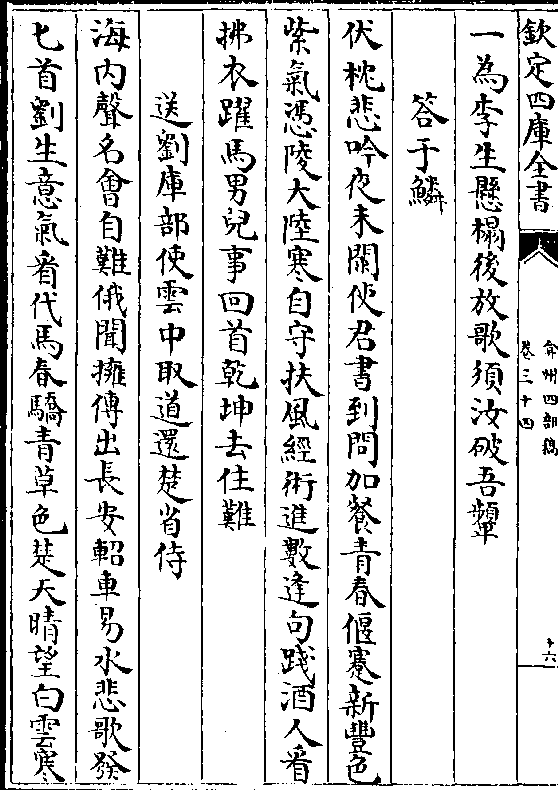 欽定四庫全書
弇州四部稿
卷三十四
十六
一為李生懸榻後放歌須汝破吾顰
答于鱗
伏枕悲吟夜未闌使君書到問加餐青春偃蹇新豐色
紫氣憑陵大陸寒自守扶風經術進數逢句踐酒人看
拂衣躍馬男兒事回首乾坤去住難
送劉庫部使雲中取道還楚省侍
海內聲名會自難俄聞擁傳出長安軺車易水悲歌發
匕首劉生意氣看代馬春驕青草色楚天晴望白雲寒